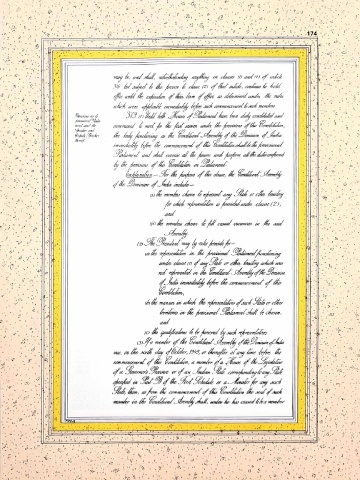 174
may be and shall, notwithstanding anything in clauses (1) and (2) of article
continue to hold
office until the expiration of their term of office as determined under the rules
which were applicable immediately before such commencement to such members.
379 (1) Until both Houses of Parliament have been duly constituted and
summoned to meet for the first session under the provisions of this Constitution,
the body functioning as the Constituent Assembly of the Dominion of India
immediately before the commencement of this Constitution shall be the provisional
Parliament and shall exercise all the powers and perform all the duties conferred
by the provisions of this Constitution on Parliament.
Explanation.—For the purposes of this clause, the Constituent Assembly
of the Dominion of India includes—
(i) the members chosen to represent any State or other territory
for which representation is provided under clause (2),
and
(ii) the members chosen to fill casual vacancies in the said
Assembly.
(2) The President may by rules provide for—
(a) the representation in the provisional Parliament functioning
under clause (1) of any State or other territory which was
not represented in the Constituent Assembly of the Dominion
of India immediately before the commencement of this
Constitution,
(b) the manner in which the representatives of such States or other
territories in the provisional Parliament shall be chosen,
and
(c) the qualifications to be possessed by such representatives.
(3) If a member of the Constituent Assembly of the Dominion of India
was, on the sixth day of October, 1949, or thereafter at any time before the
commencement of this Constitution, a member of a House of the Legislature
of a Governor's Province or of an Indian State corresponding to any State
specified in Part B of the First Schedule or a Minister for any such
State, then, as from the commencement of this Constitution the seat of such
member in the Constituent Assembly shall, unless he has ceased to be a member
Provisions as to
provisional Parlia-
ment and the
Speaker and
Deputy Speaker
thereof.